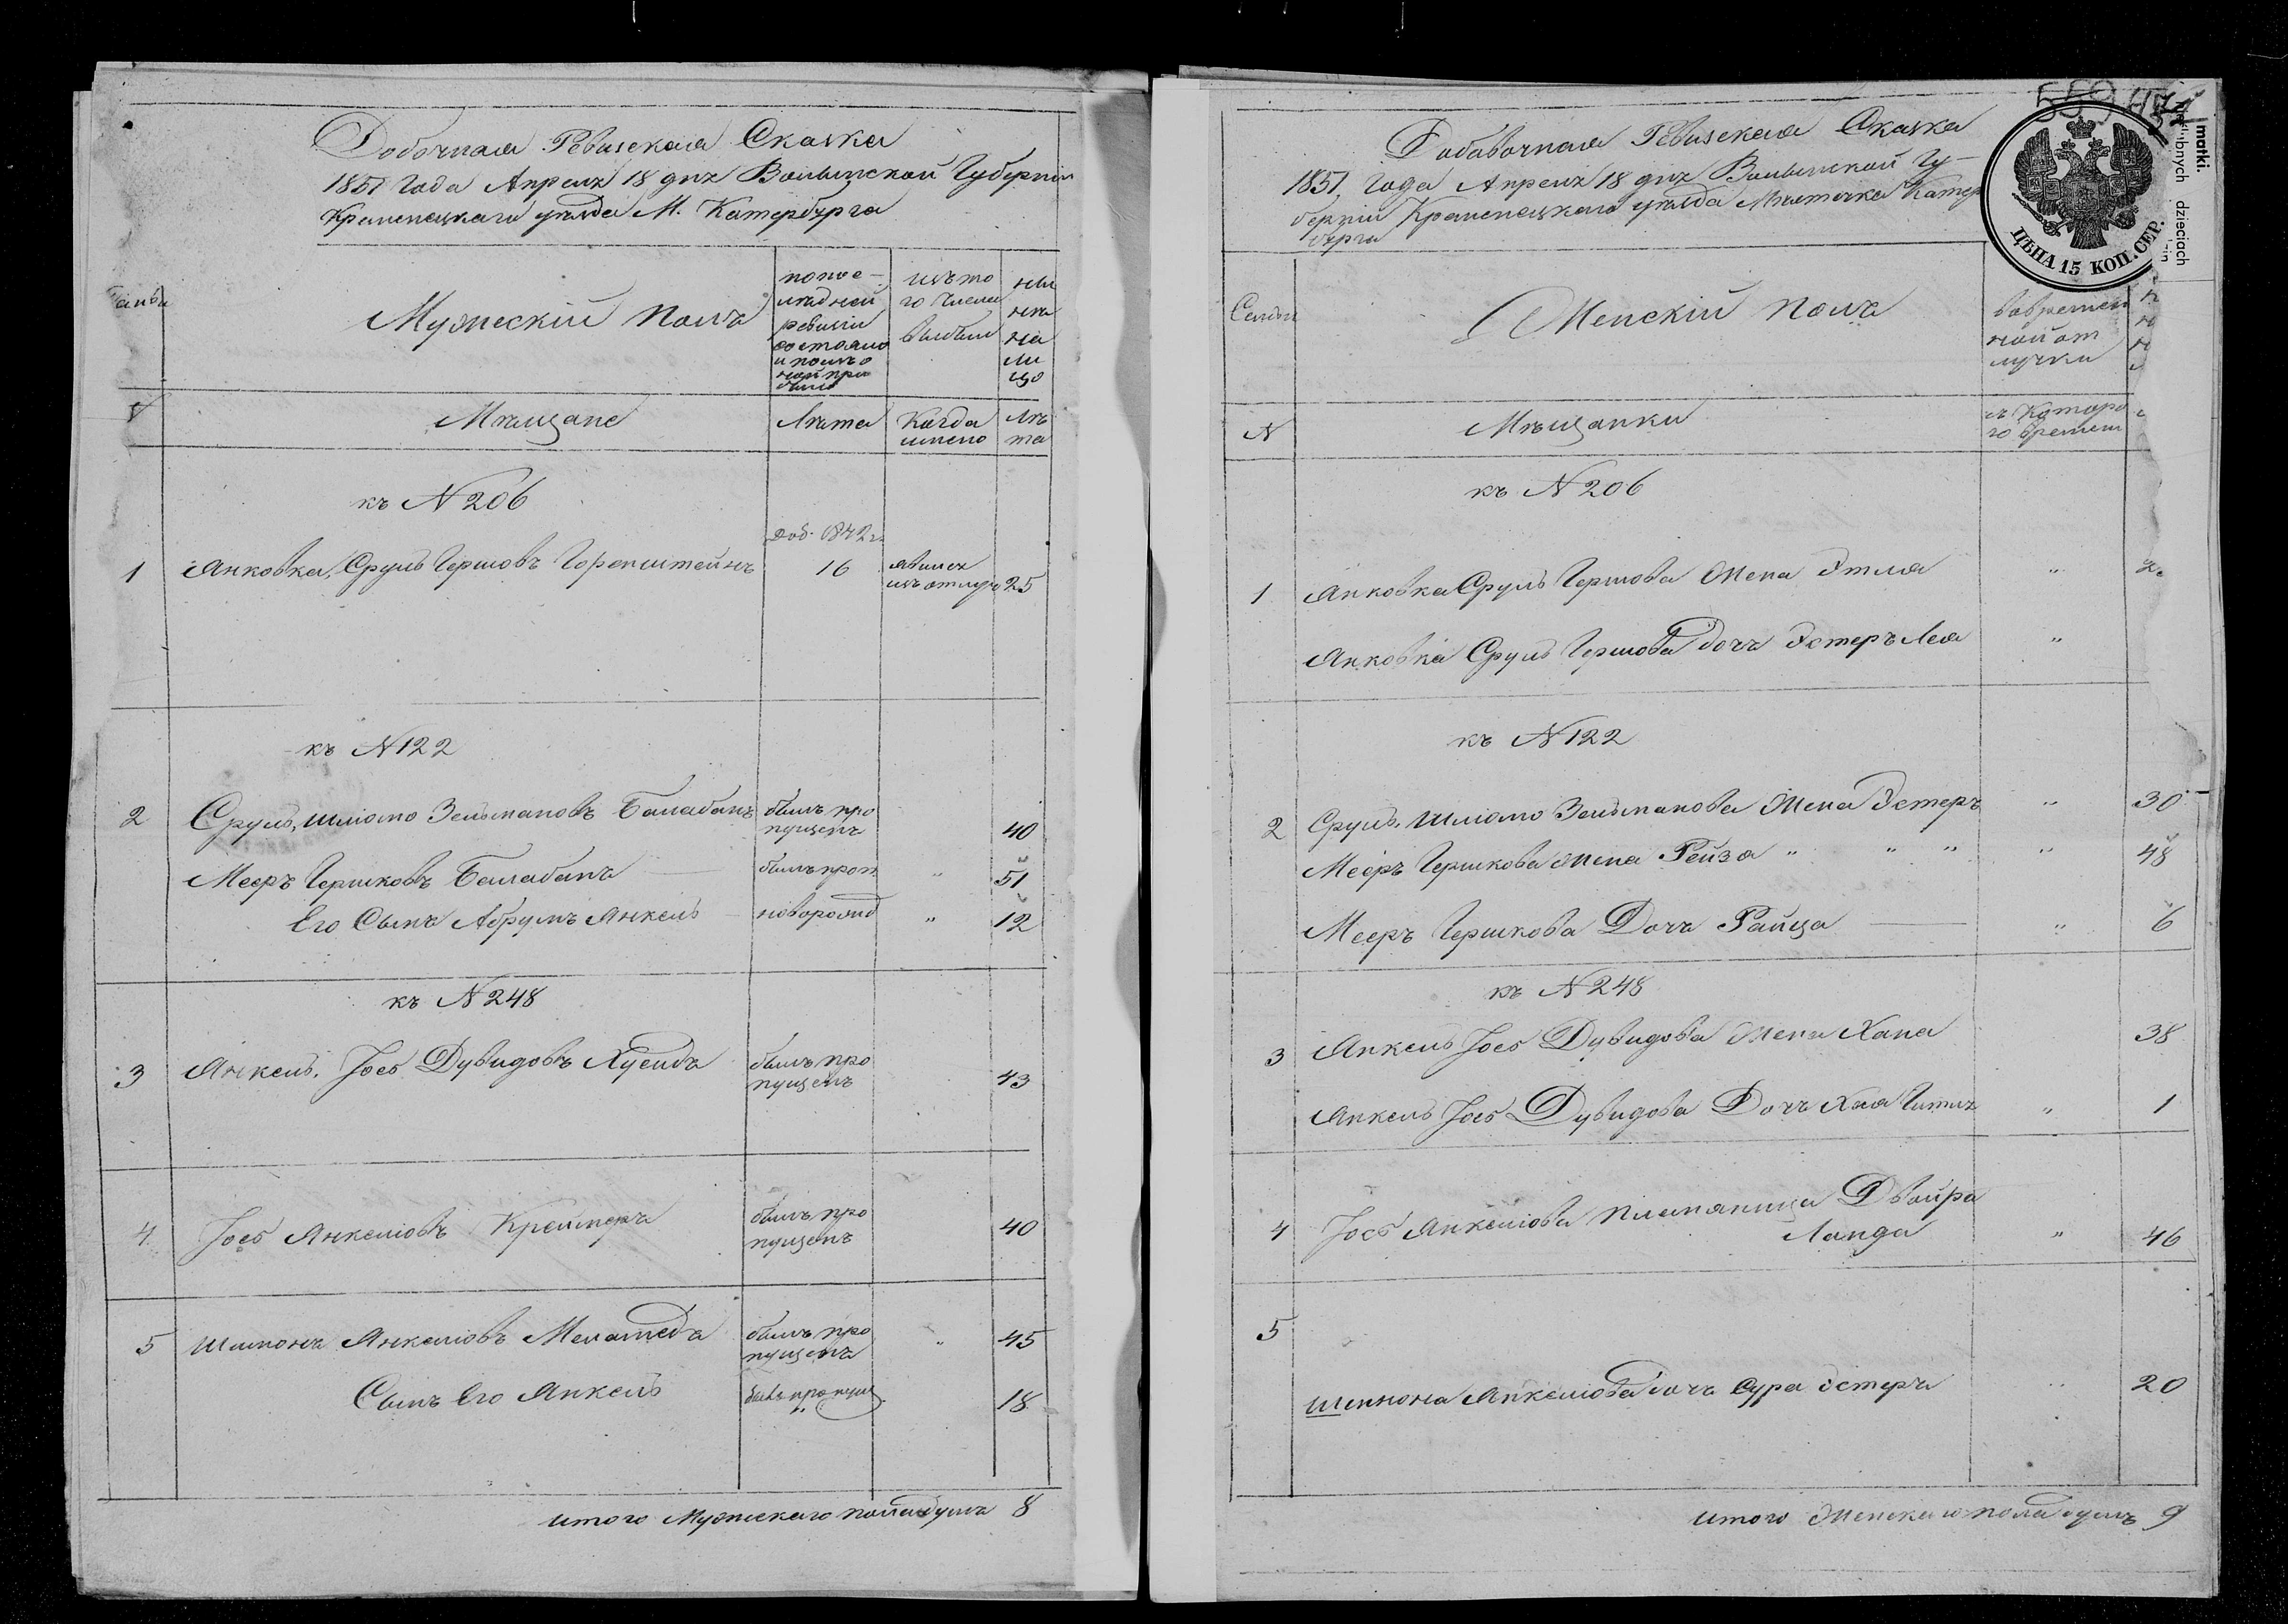 Добочная Ревизская Сказка
1851 Года Апреля 18 дня Волынской Губернiи
Кременецкаго уѣзда М. Катербурга
Мужескiй полъ
после-
ледней
ревизiи
состояло
и после
ной при
было
изъ то
го числа
выбыло
ны
нѣ
на
ли
цо
N
Мѣщане
Лѣта
Когда
имено
Лѣ
та
къ N 206
Доб. 1842 г.
1 Янковка, Сруль Гершовъ Горенштейнъ 16 явился изъ отлуч 25
къ N 122
2 Сруль, Шліомо Зельмановъ Балабанъ былъ про 40
пущенъ
Мееръ Гершковъ Балабанъ былъ проп " 51
Его Сынъ Абрумъ Янкель новорожд " 12
къ N 248
3 Янкель. Іось Дувидовъ Хусидъ былъ про 43
пущенъ
4 Іось Янкеліовъ Крейнеръ былъ про 40
пущенъ
5 Шимонъ Янкеліовъ Меламедъ былъ про " 45
пущенъ
Сынъ Его Янкель былъ пропущ 18
итого Мужескаго пола душъ 8
559
Добавочная Ревизская Сказка
1851 Года Апреля 18 дня Волынской Гу-
бернiи Кременецкаго уѣзда Мѣстечка Катер
бурга
ЦѢНА 15 КОП. СЕР.
matki.
dzieciach
Семьи
Женскiй полъ
вовремен
ной от
лучки
N
Мѣщанки
съ Которо
го времени
къ N 206
1 Янковка Сруль Гершова Жена Этля "
Янковка Сруль Гершова дочь Эстеръ Лея "
къ N 122
2 Сруль, Шліомо Зельманова Жена Эстеръ " 30
Мееръ Гершкова жена Рейза " " " " 48
Мееръ Гершкова Дочь Райца " 6
къ N 248
3 Янкель Іось Дувидова Жена Хана 38
Янкель Іось Дувидова Дочь Хая Гитля " 1
4 Іось Янкеліова племяница Двойра
Ланда " 46
5
Шимона Янкеліова дочь Сура Эстеръ " 20
итого Женскаго пола душъ 9